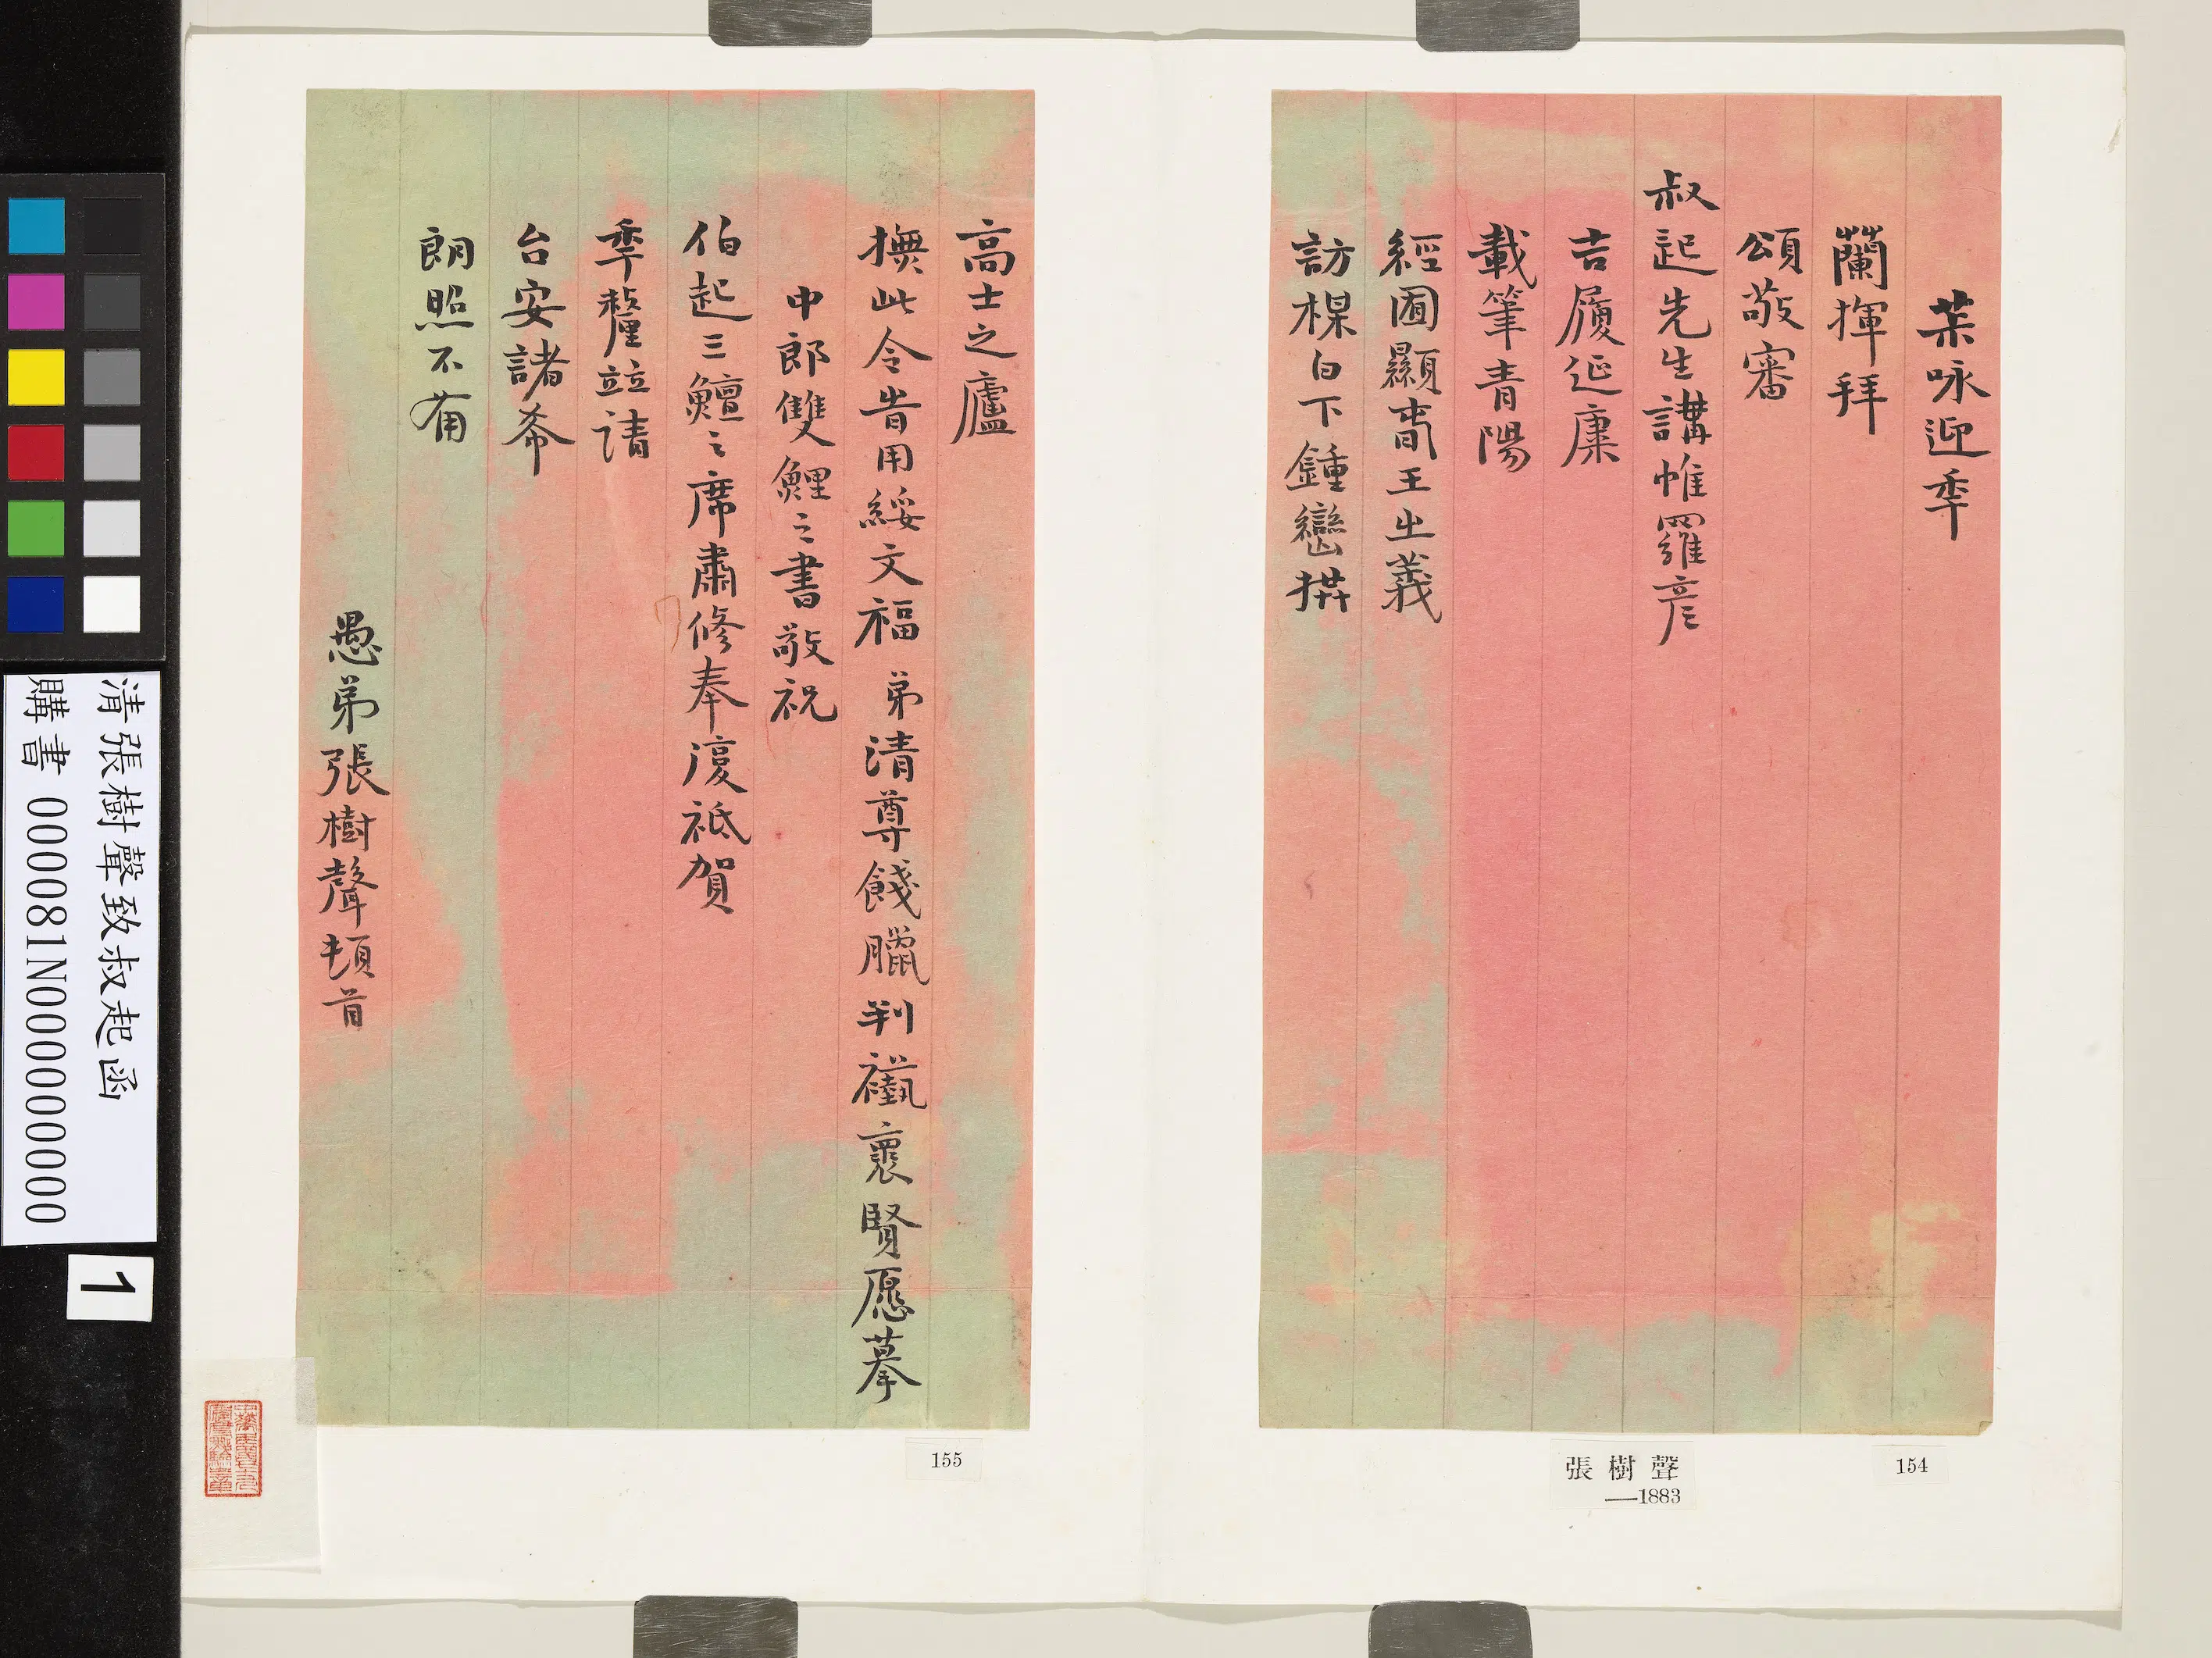 茉咏迎秊
蘭揮拜
頌敬審
叔起先生講帷羅彥
吉履延康
載筆青陽
經圃顯春王㞢義
訪楳白下鍾巒
高士之廬
撫此令用綏文福弟清尊餞臘判襼褱賢愿摹
中郎雙鯉之書敬祝
伯起三鱣之席肅修奉復祗賀
秊釐竝請
台安諸希
朗照不莆
愚弟張樹聲頓首
張樹聲
—1883
154
155
清張樹聲致叔起函
購書 000081N000000000
1